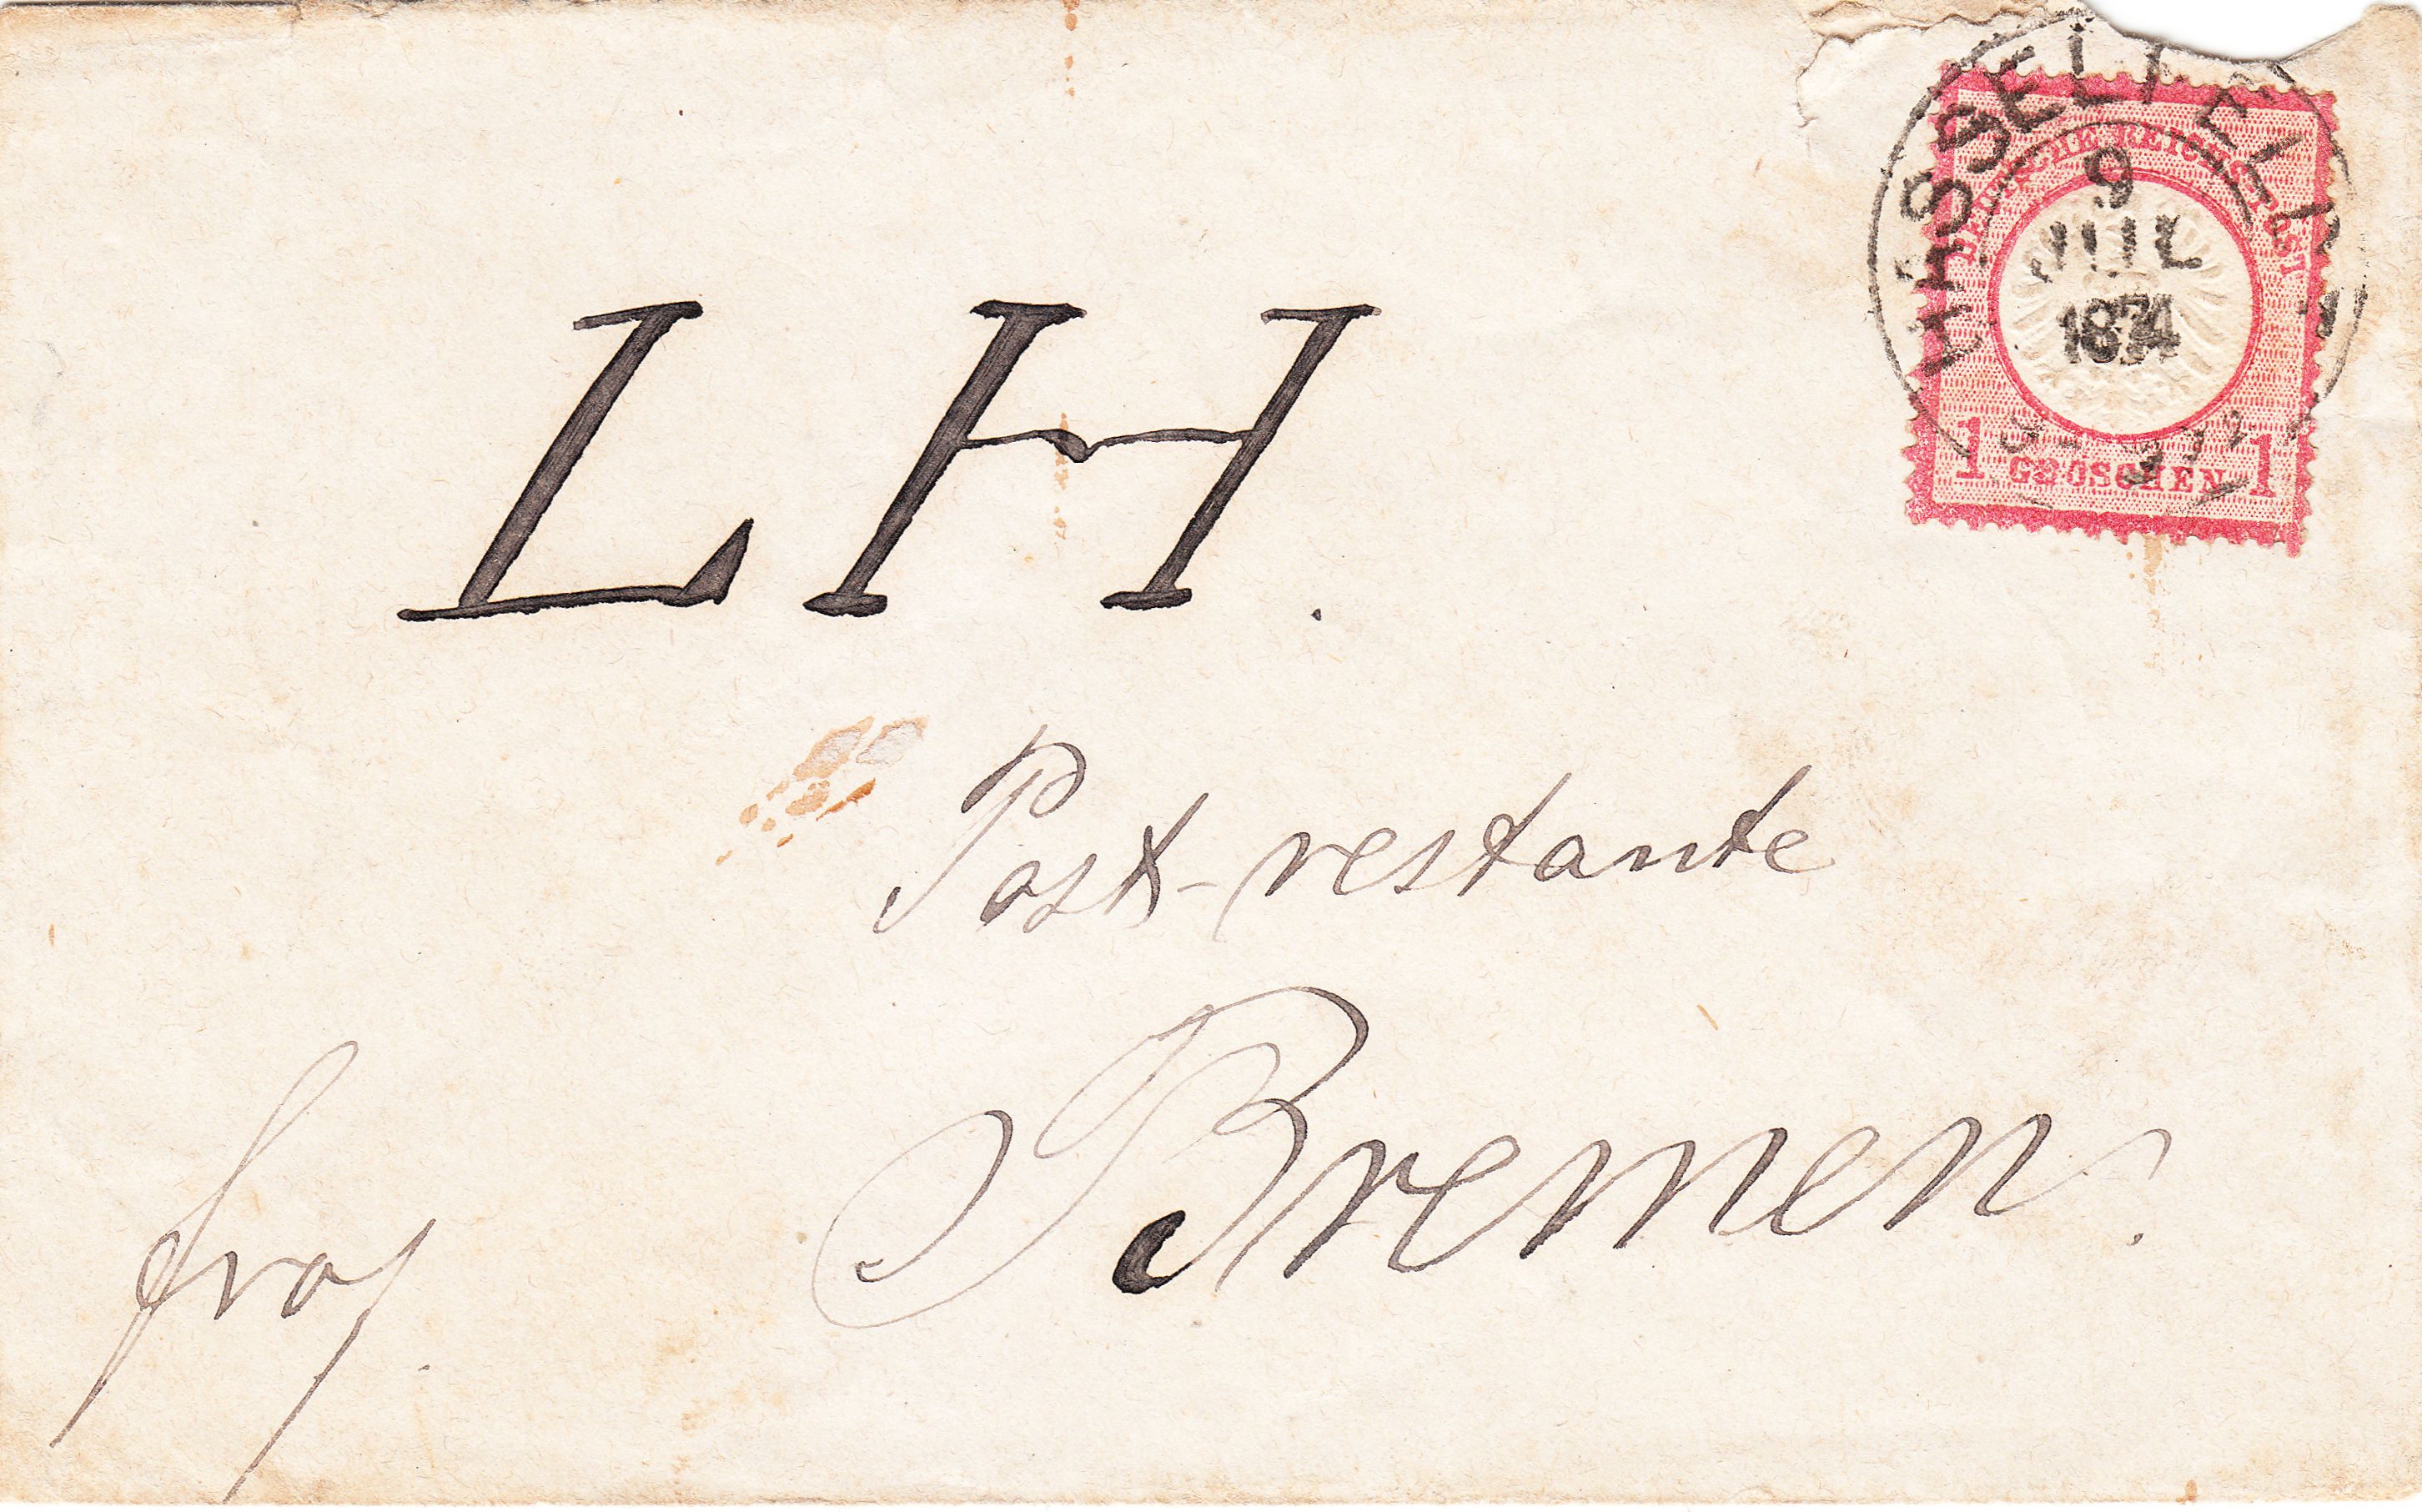 HASSELFELDE
9
JUL
1874
DEUTSCHE REICHS-POST
1 GROSCHEN 1
L H.
Post-restante
Bremen.